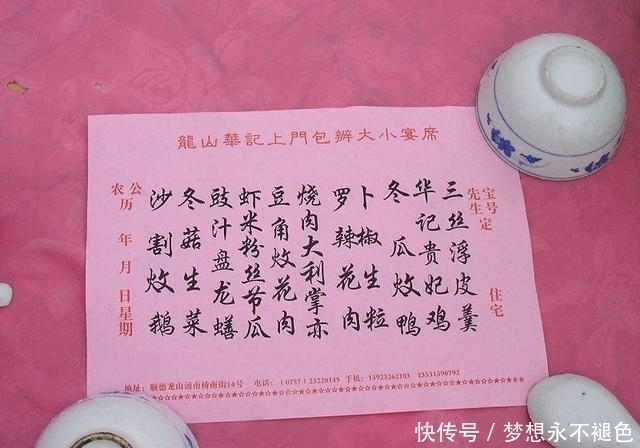 龍山華記上門包辦大小宴席
宝号定
先生
住宅
三丝浮皮羹
华记贵妃鸡
冬瓜炆鸭
卜椒生粒
罗辣花肉
烧肉大利掌亦
豆角炆花肉
虾米粉丝节瓜
豉汁盘龙鳝
冬菇生菜
沙割炆鹅
公
农历 年 月 日星期
地址：顺德龙山涌南桥南街14号 电话：(0757)23228145 手机：13923262103 13531390792
快传号 / 梦想永不褪色